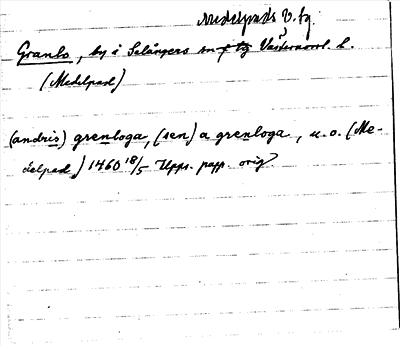 Medelpads V. tg
Granbo, by i Selångers sn, Västernorrl. l.
(Medelpad)
(andris) grenboga, (sen) a grenboga, u. o. (Me-
delpad) 1460 18/5 Upps. papp. orig.